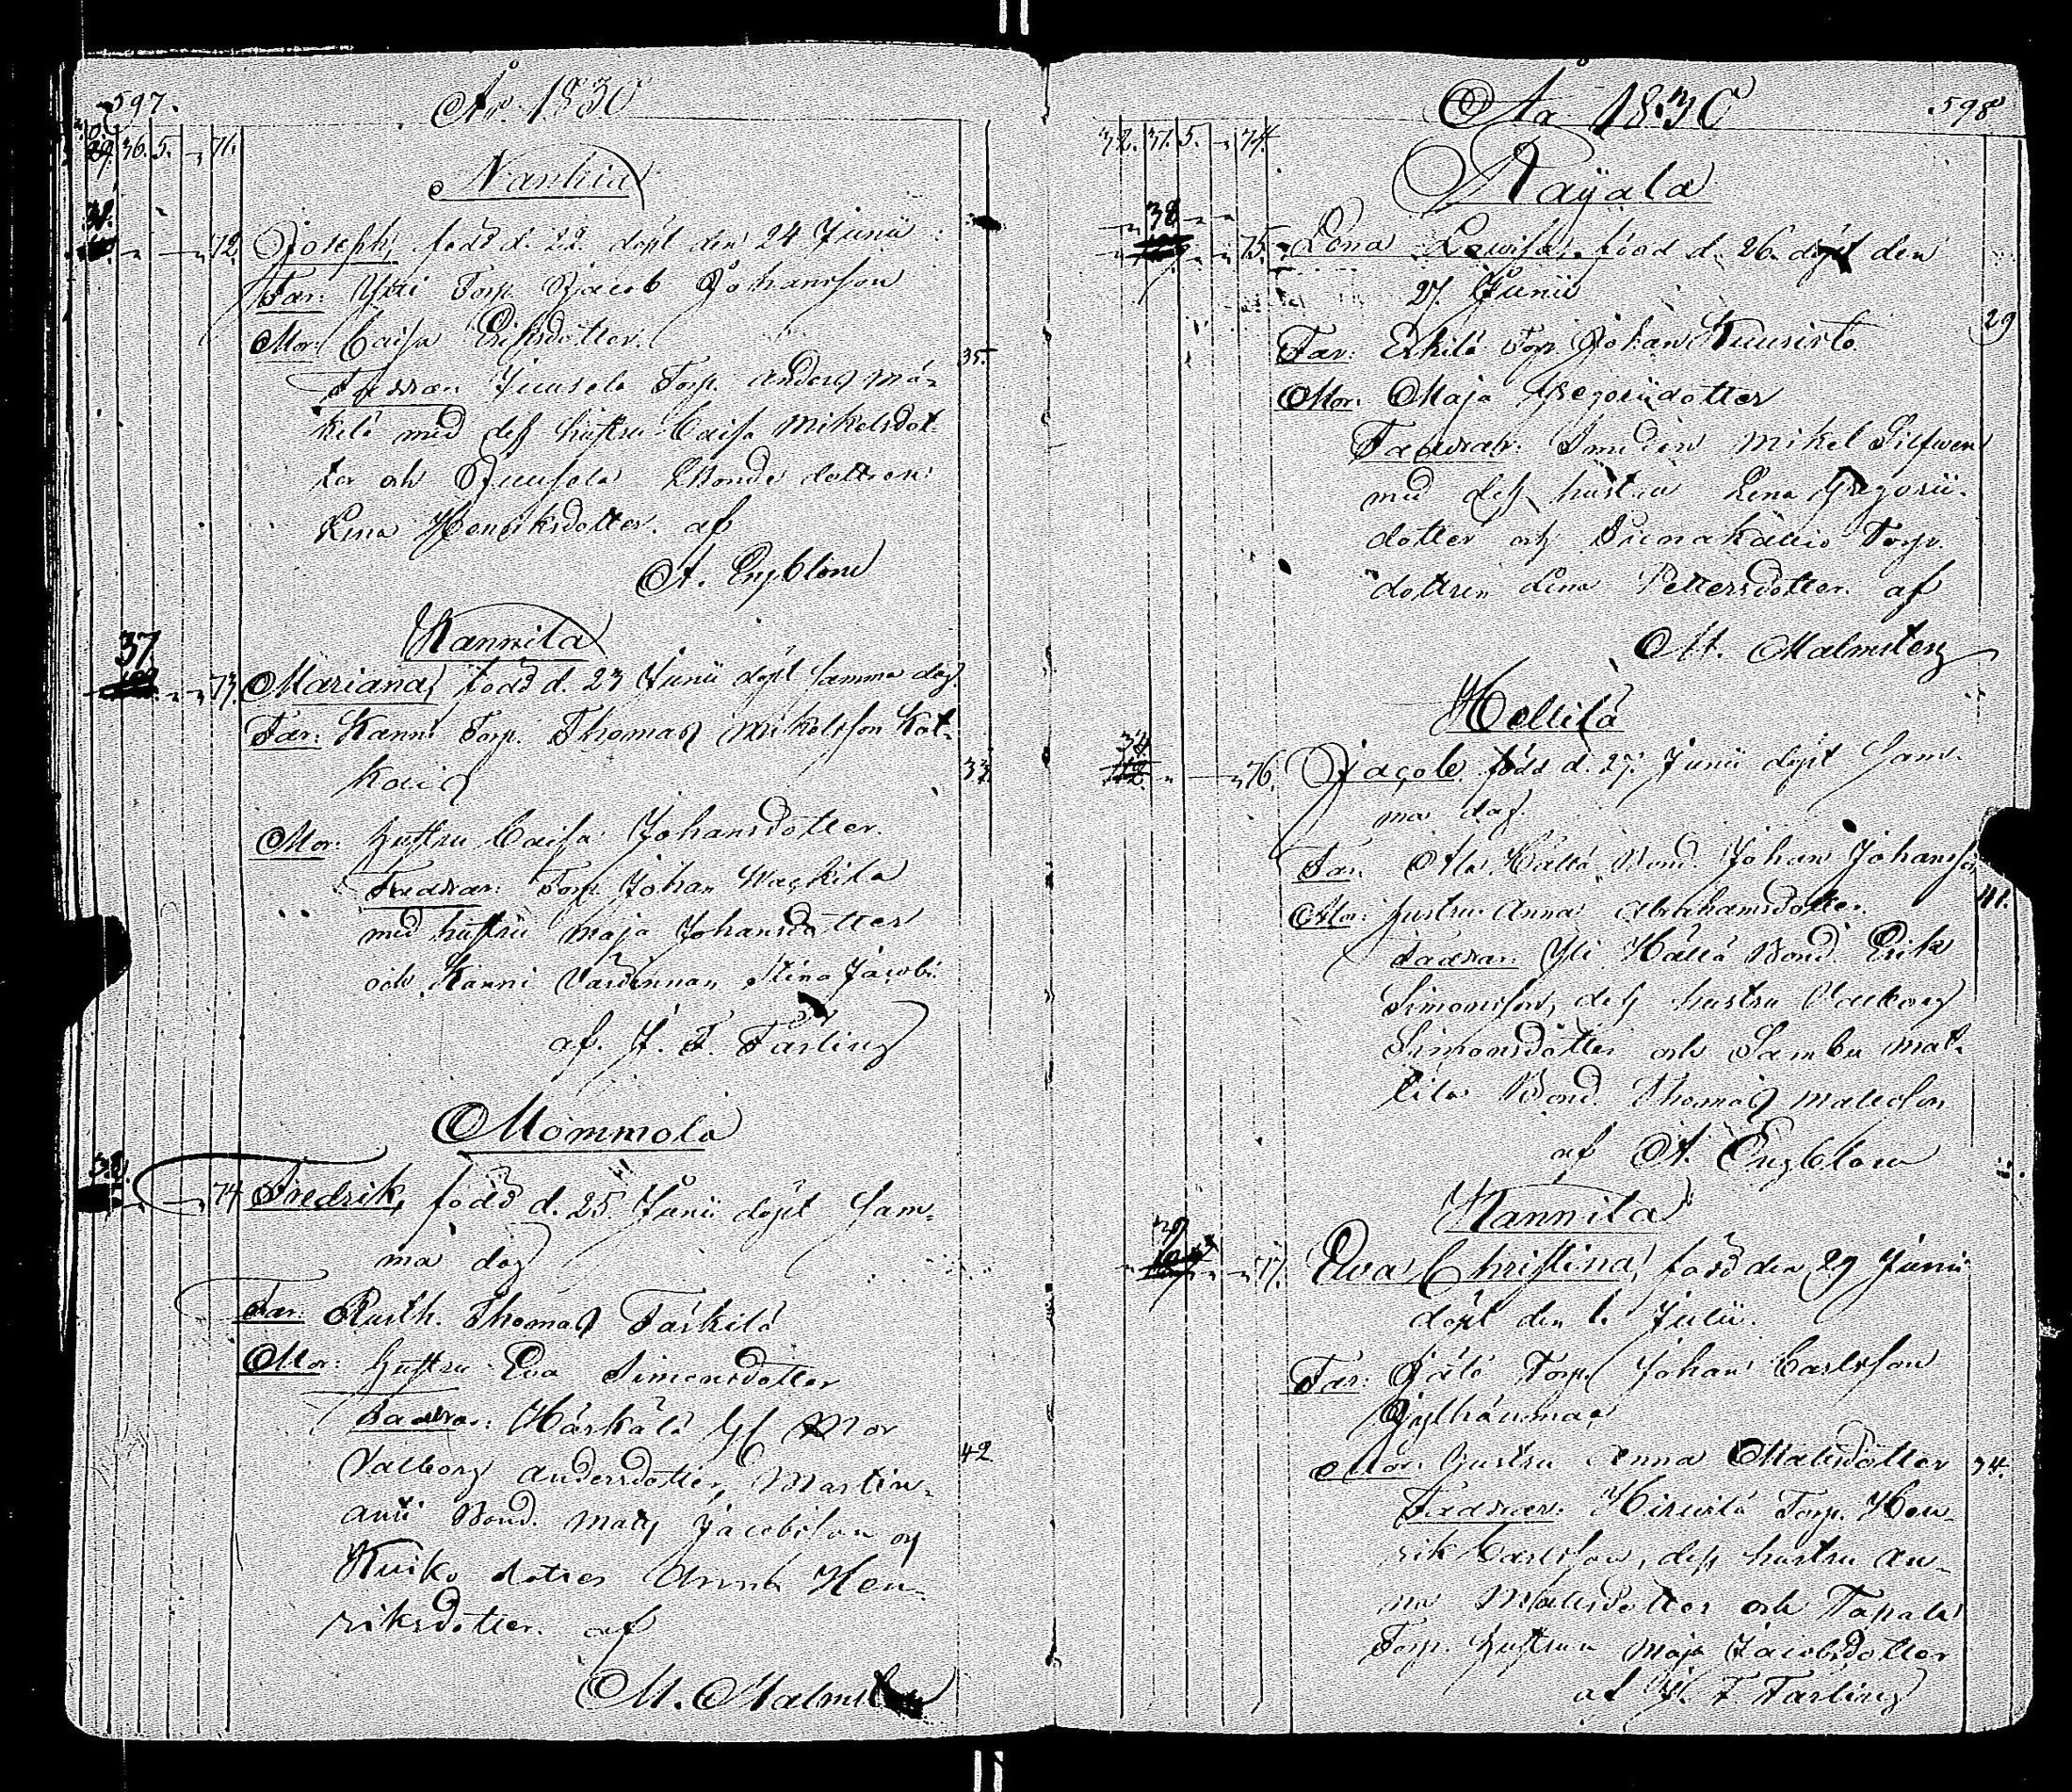 597.
År 1830
36. 5. 71.
Nankia
38.
72. Joseph, född d. 22. döpt den 24 Junii
Far: Torp. Jacob Johansson
Mor: Caisa Eriksdotter.
35.
Faddrar: Juusela Torp. Anders Mä-
kilä med dess hustru Caisa Mikelsdot-
ter och Juusela Bonde dottren
Lena Henriksdotter. af
A. Engblom
Kannila
37
73. Mariana, född d. 23 Junii döpt samma dag.
Far: Kanni Torp. Thomas Mikelsson Kot-
kais
33.
Mor: hustru Caisa Johansdotter.
Faddrar: Torp. Johan
med hustru Maja Johansdotter
och Kanni Värdinnan Stina Jacobi.
af. J. F. Färling
Mommola
38.
74 Fredrik, född d. 25. Junii döpt sam-
ma dag
Far: Rusth. Thomas Färkilä
Mor: hustru Eva Simonsdotter
Faddrar: Mor
42
Valborg Andersdotter, Martin-
Bond. Matts Jacobsson och
dotter Anna Hen-
riksdotter. af
M. Malmsten
År 1830
598
32. 31. 5. 74.
Rajala
38
75. Lena Lovisa, född d. 26. döpt den
27 Junii
29
Far: Erkilä Torp. Johan Kuusisto
Mor: Maja Gregoriidotter
Faddrar: Smeden Mikel Silfwen
med dess hustru Lena Gregorii-
dotter och Torp.
dottren Lena Pettersdotter. af
M. Malmsten
Hellilä
34
76. Jacob. född d. 27. Junii döpt sam-
ma dag.
Far: Ala Hällä Bond. Johan Johansson
Mor: hustru Anna Abrahamsdotter.
41.
Faddrar: Yli Hällä Bond. Erik
Simonsson, dess hustru Valborg
Simonsdotter och Sambu Mat-
tila Bond. Thomas Mattsson
af A. Engblom
Kannila
39
77. Eva Christina, född den 29 Junii
döpt den 1. Julii.
Far: Torp. Johan Carlsson
Mor: hustru Anna Mattsdotter
34.
Faddrar: Hirvilä Torp. Hen-
rik Carlsson, dess hustru An-
na Mattsdotter och Tapala
Torp. hustrun Maja Jacobsdotter
af J. F. Färling